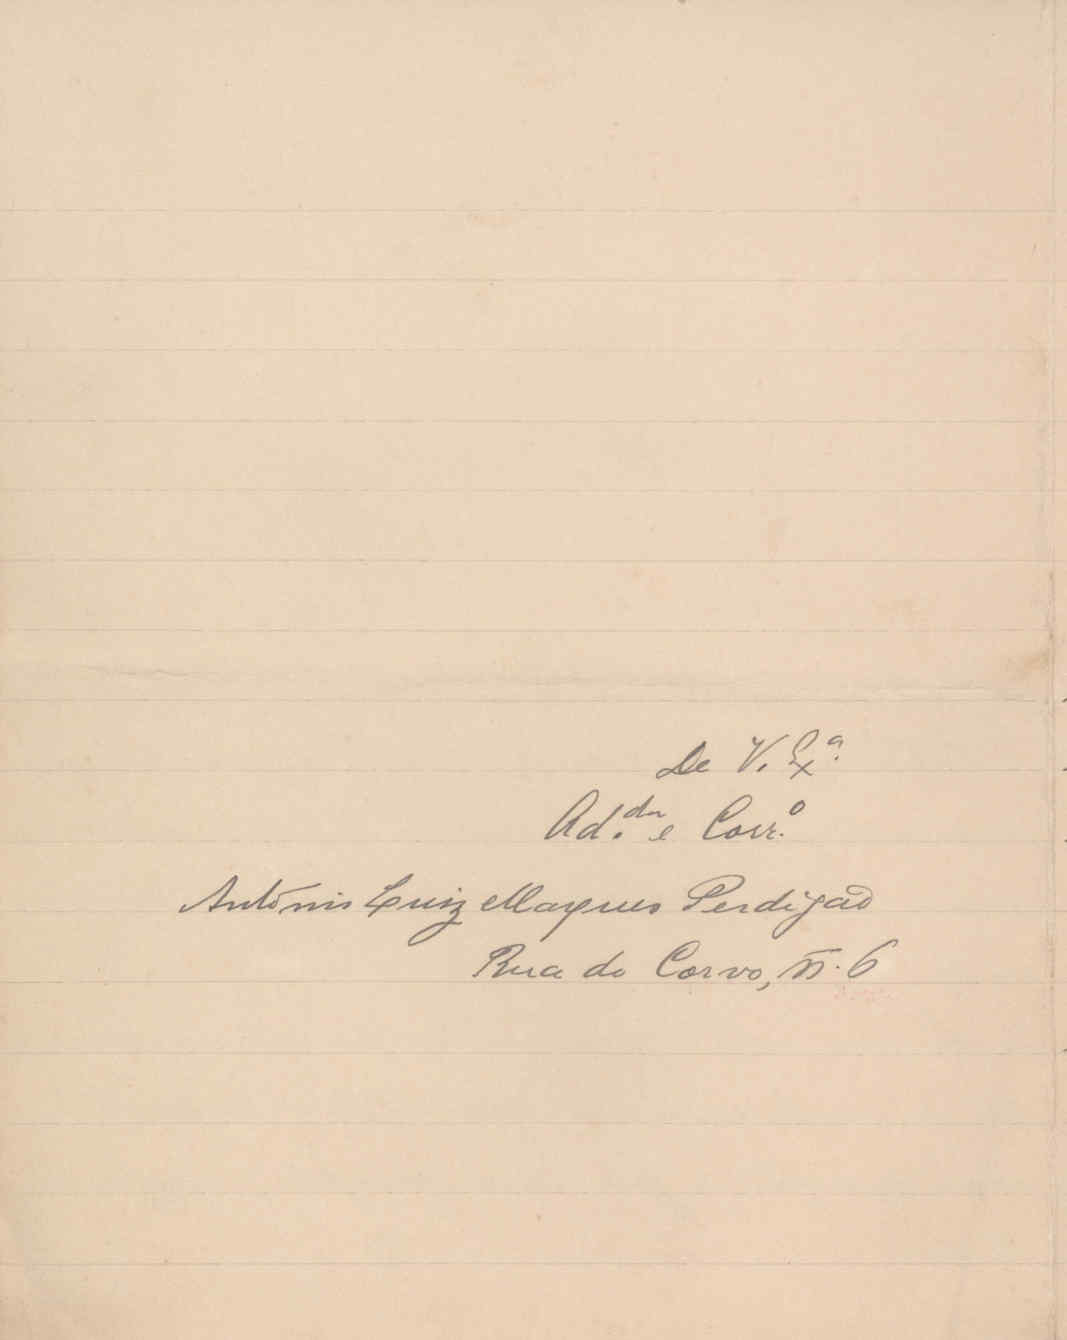 De V. Ex.ª
Ad.dor e Corr.º
António Luiz Marques Perdigão
Rua do Corvo, n. 6